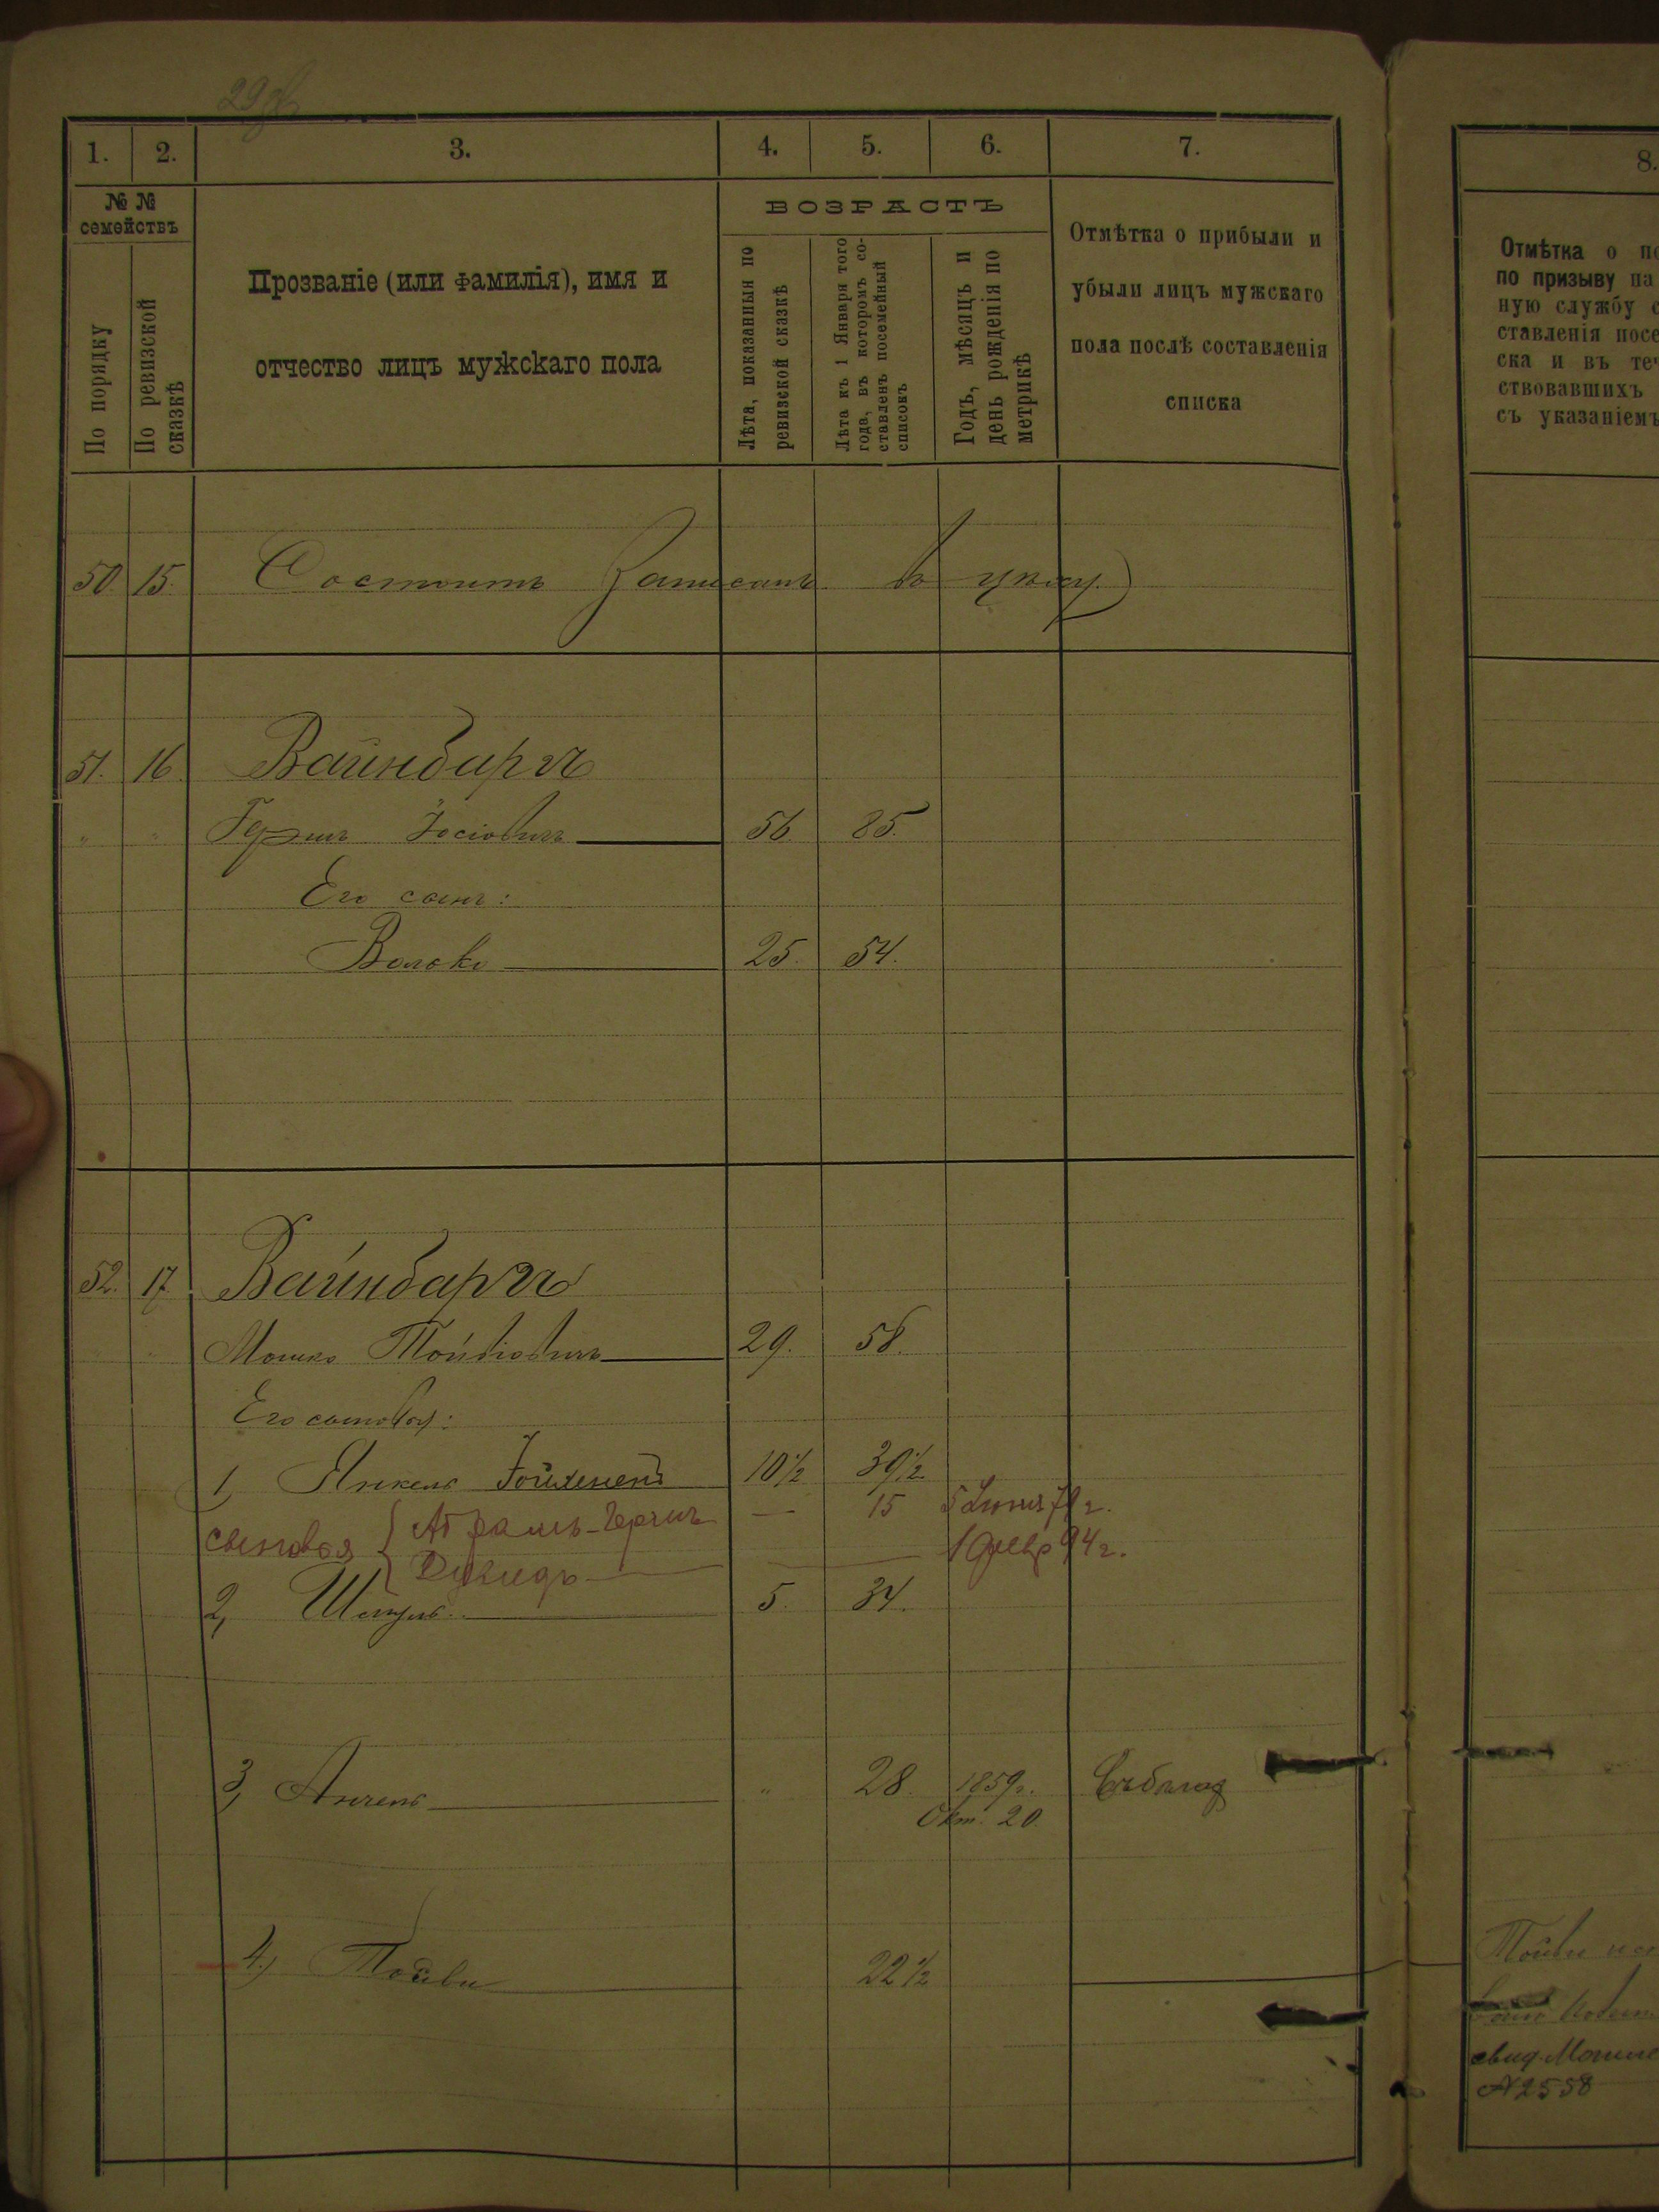 1. 2. 3. 4. 5. 6. 7.
№ №
семействъ
По порядку
По ревизской сказкѣ
Прозваніе (или фамилія), имя и
отчество лицъ мужскаго пола
ВОЗРАСТЪ
Лѣта, показанныя по
ревизской сказкѣ
Лѣта къ 1 Января того
года, въ которомъ со-
ставленъ посемейный
списокъ
Годъ, мѣсяцъ и
день рожденія по
метрикѣ
Отмѣтка о прибыли и
убыли лицъ мужскаго
пола послѣ составленія
списка
50. 15. Состоитъ Записанъ въ
51. 16. Вайнбаргъ
" " Гершъ Іосіовичъ 56. 85.
Его сынъ:
Волько 25. 54.
52. 17. Вайнбаргъ
Мошко Тойвіовичъ 29. 58.
Его сыновья:
1, Янкель 10½ 39½
сыновья { Абрамъ-Гершъ — 15 5 Іюня 79 г.
Дувидъ — 1 Февр 94 г.
2, Шмуль 5. 34.
3, Анчель " 28. 1859г.
Окт. 20.
4.) Тойви 22½
8.
Отмѣтка о
по призыву на
ную службу
ставленія
ска и въ
ствовавшихъ
съ указаніемъ
Тойви
свид.
№ 2558